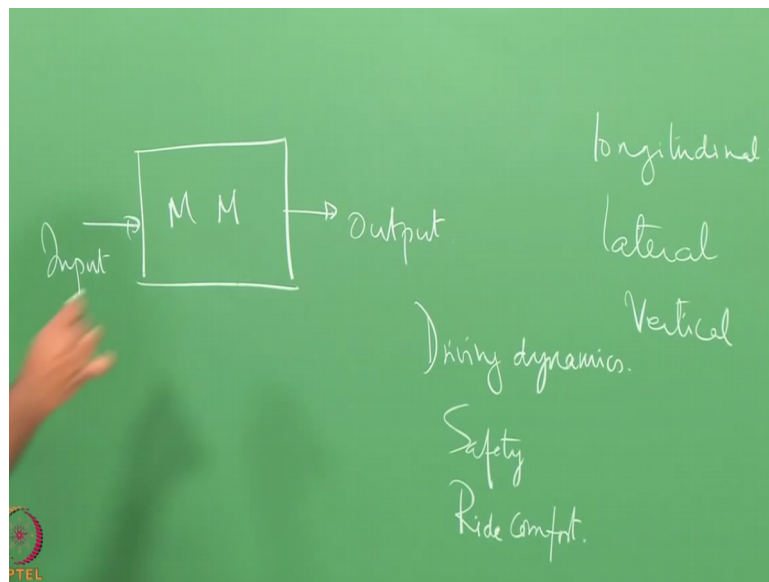 Input
M M
Output
longitudinal
lateral
Vertical
Driving dynamics.
Safety
Ride comfort.
PTEL